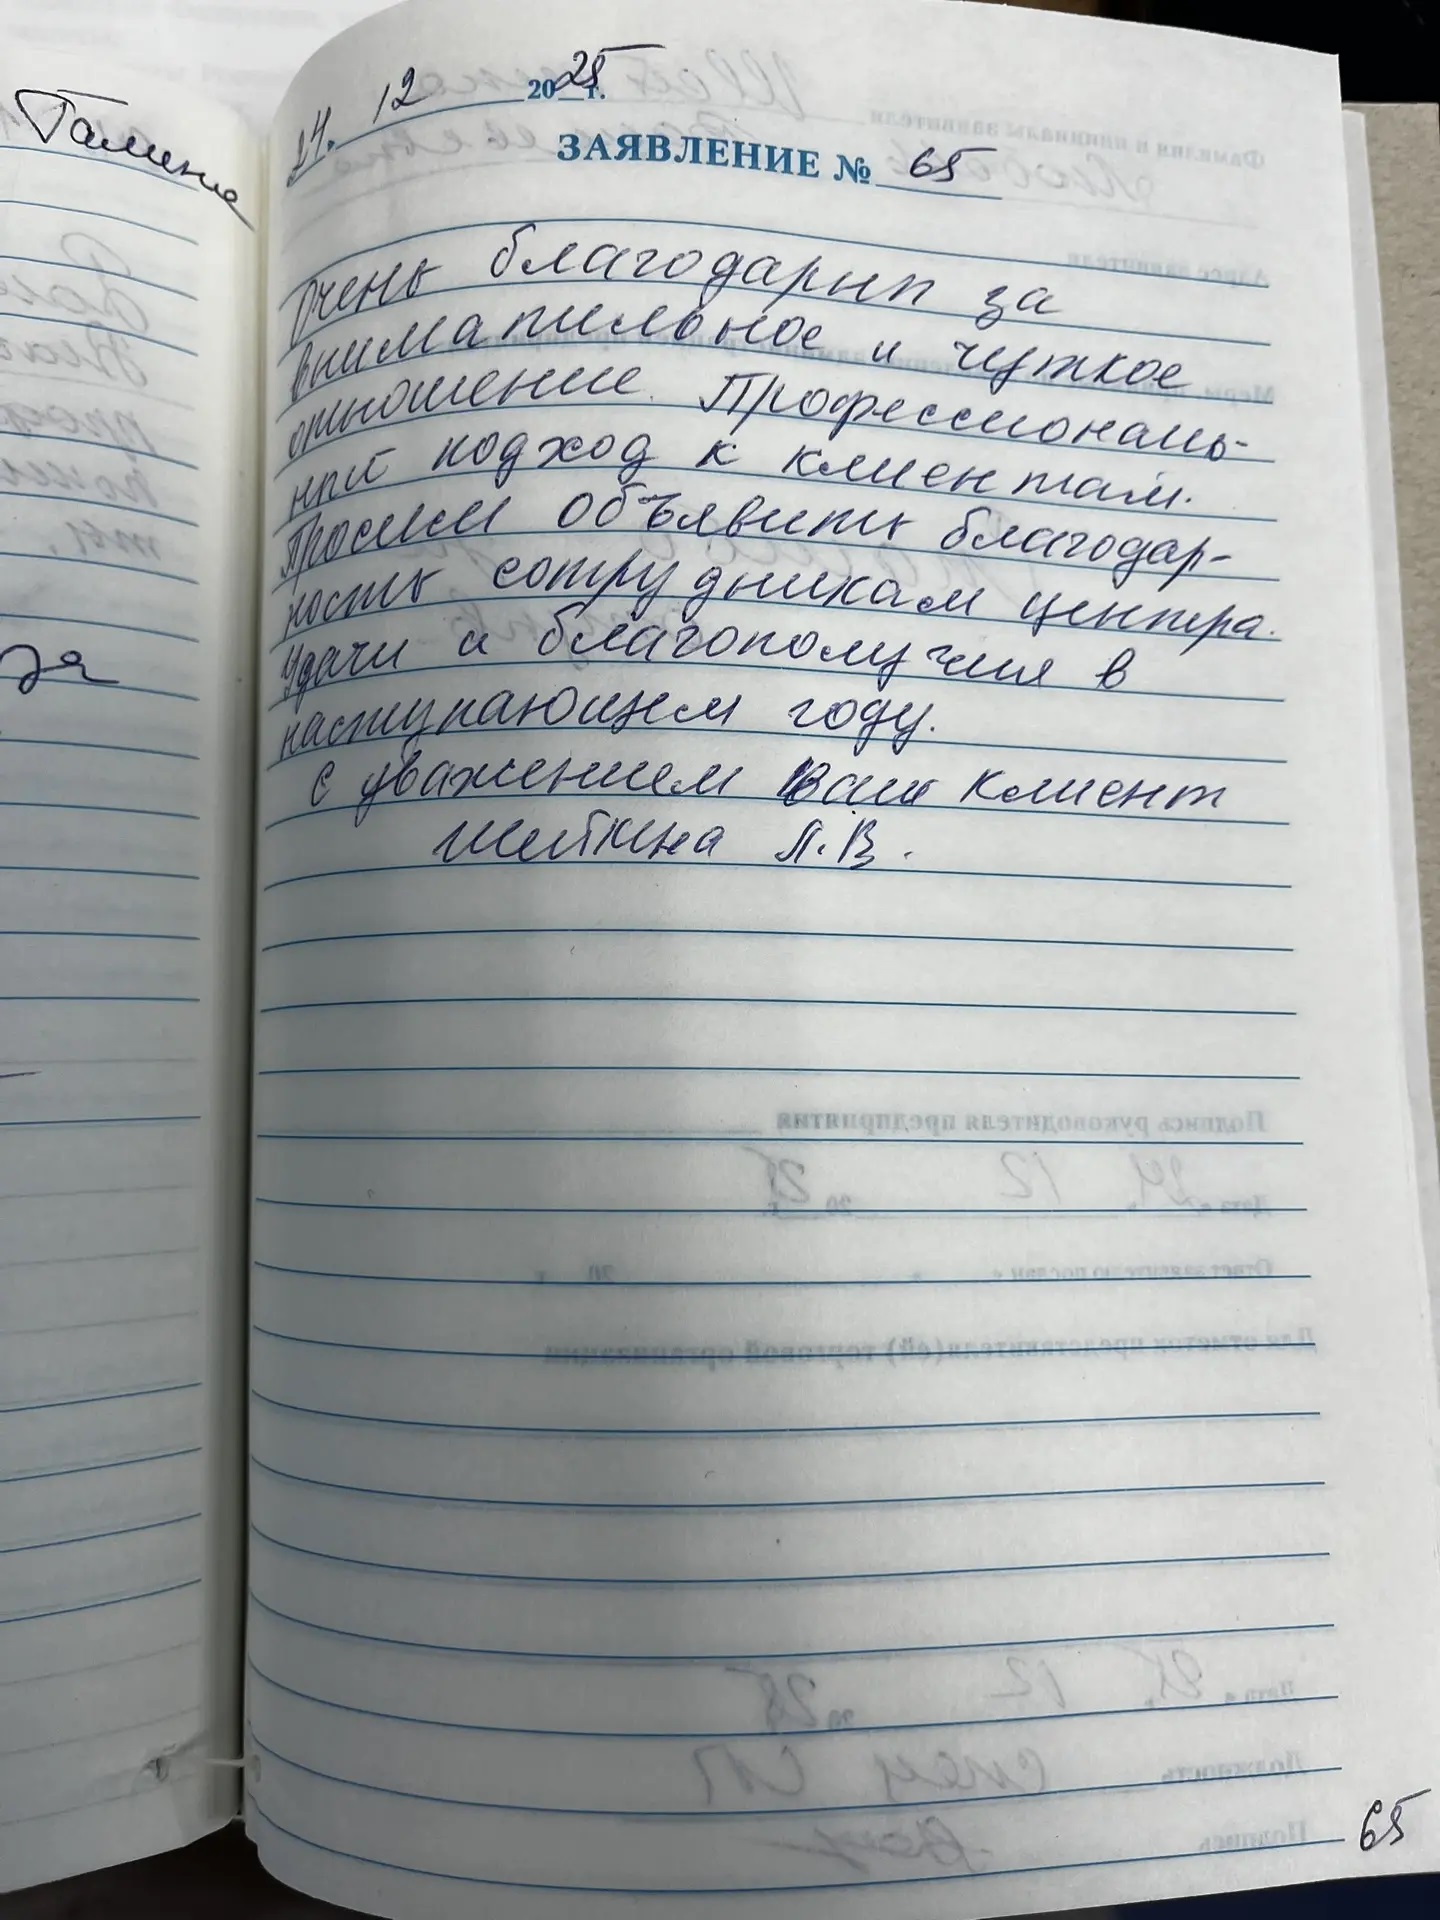 Галина
за
24. 12 2025 г.
ЗАЯВЛЕНИЕ № 65
Очень благодарит за
внимательное и чуткое
отношение. Профессиональ-
ный подход к клиентам.
Просим объявить благодар-
ность сотрудникам центра.
Удачи и благополучия в
наступающем году.
С уважением Ваш клиент
Л.В.
65